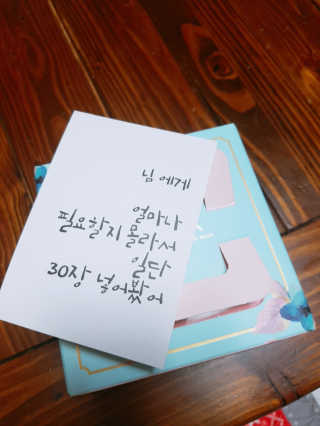 님 에게
얼마나
필요할지 몰라서
일단
30장 넣어봤어